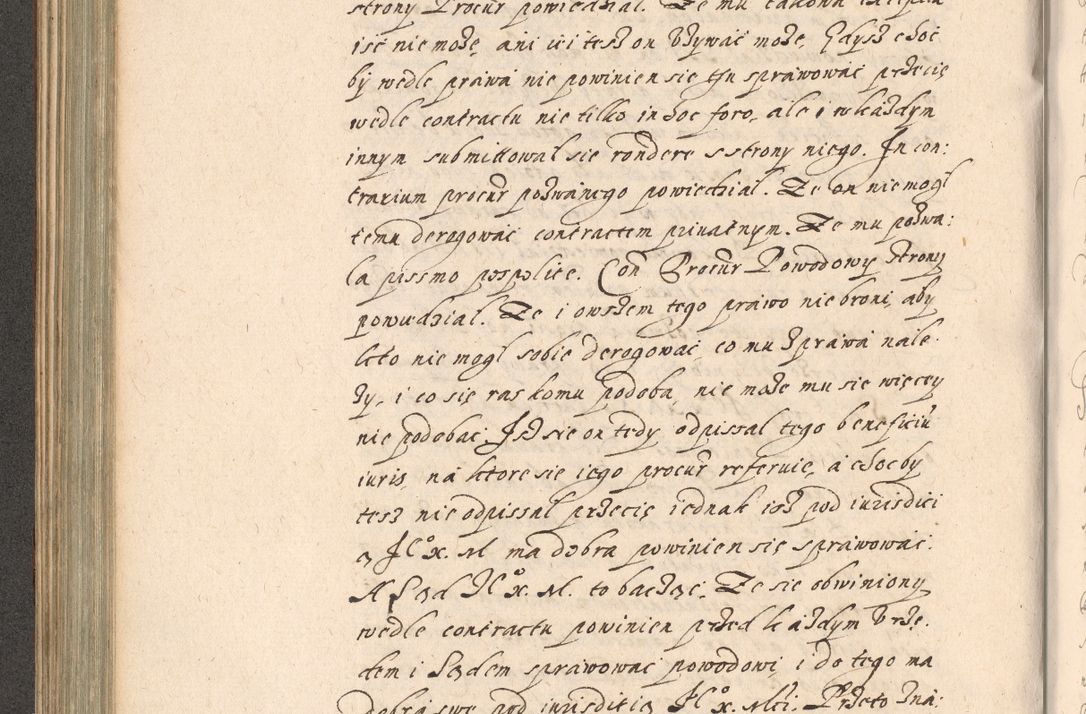 strony Procur powiedzial. Ze mu takowa exceptia
isc nie może, ani iei tesz on Vżywać może, Gdysz choc
by wedle prawa nie powinien się tſu sprawować przecię
wedle contractu nie tilko in hoc foro, ale i w każdym
innym submittował się rondere s strony niego. In con:
trarium procur poźwanego powiedział. Ze on nie mogł
temu derogować contractem priuatnym. Ze mu pozwa:
la pissmo pospolite. Con Procur Powodowy strony
powiedział. Ze i owszem tego prawo nie broni, aby
kto nie mogl sobie derogować, co mu z prawa nale
zy, i co się ras komu podoba, nie może mu się więcey
nie podobać. Isz się on tedy odpissal tego beneficiu
iuris, na ktore się iego procur referuie, a chocby
tesz nie odpissal przecię iednak isz pod iurisditi
ą Jº x. M. ma dobra powinien się sprawować.
A Sąd Jº x. M. to bacząc, Ze się obwiniony
wedle contractu powinien przed każdym Vrzę.
dem i Sądem sprawować powodowi, i do tego ma
dobra swe pod iurisditią Jº x. Mci: Przeto zna: